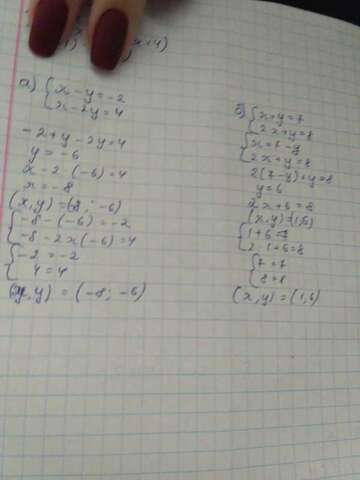 x+4)
а) { x - y = -2
x - 2y = 4
-2 + y - 2y = 4
y = -6
x - 2 · (-6) = 4
x = -8
(x, y) = (8; -6)
{ -8 - (-6) = -2
-8 - 2 x (-6) = 4
{ -2 = -2
4 = 4
(x, y) = (-8; -6)
б) { x + y = 7
2x + y = 8
{ x = 7 - y
2x + y = 8
2(7 - y) + y = 8
y = 6
2x + 6 = 8
(x, y) = (1, 6)
{ 1 + 6 = 7
2 · 1 + 6 = 8
{ 7 = 7
8 = 8
(x, y) = (1, 6)